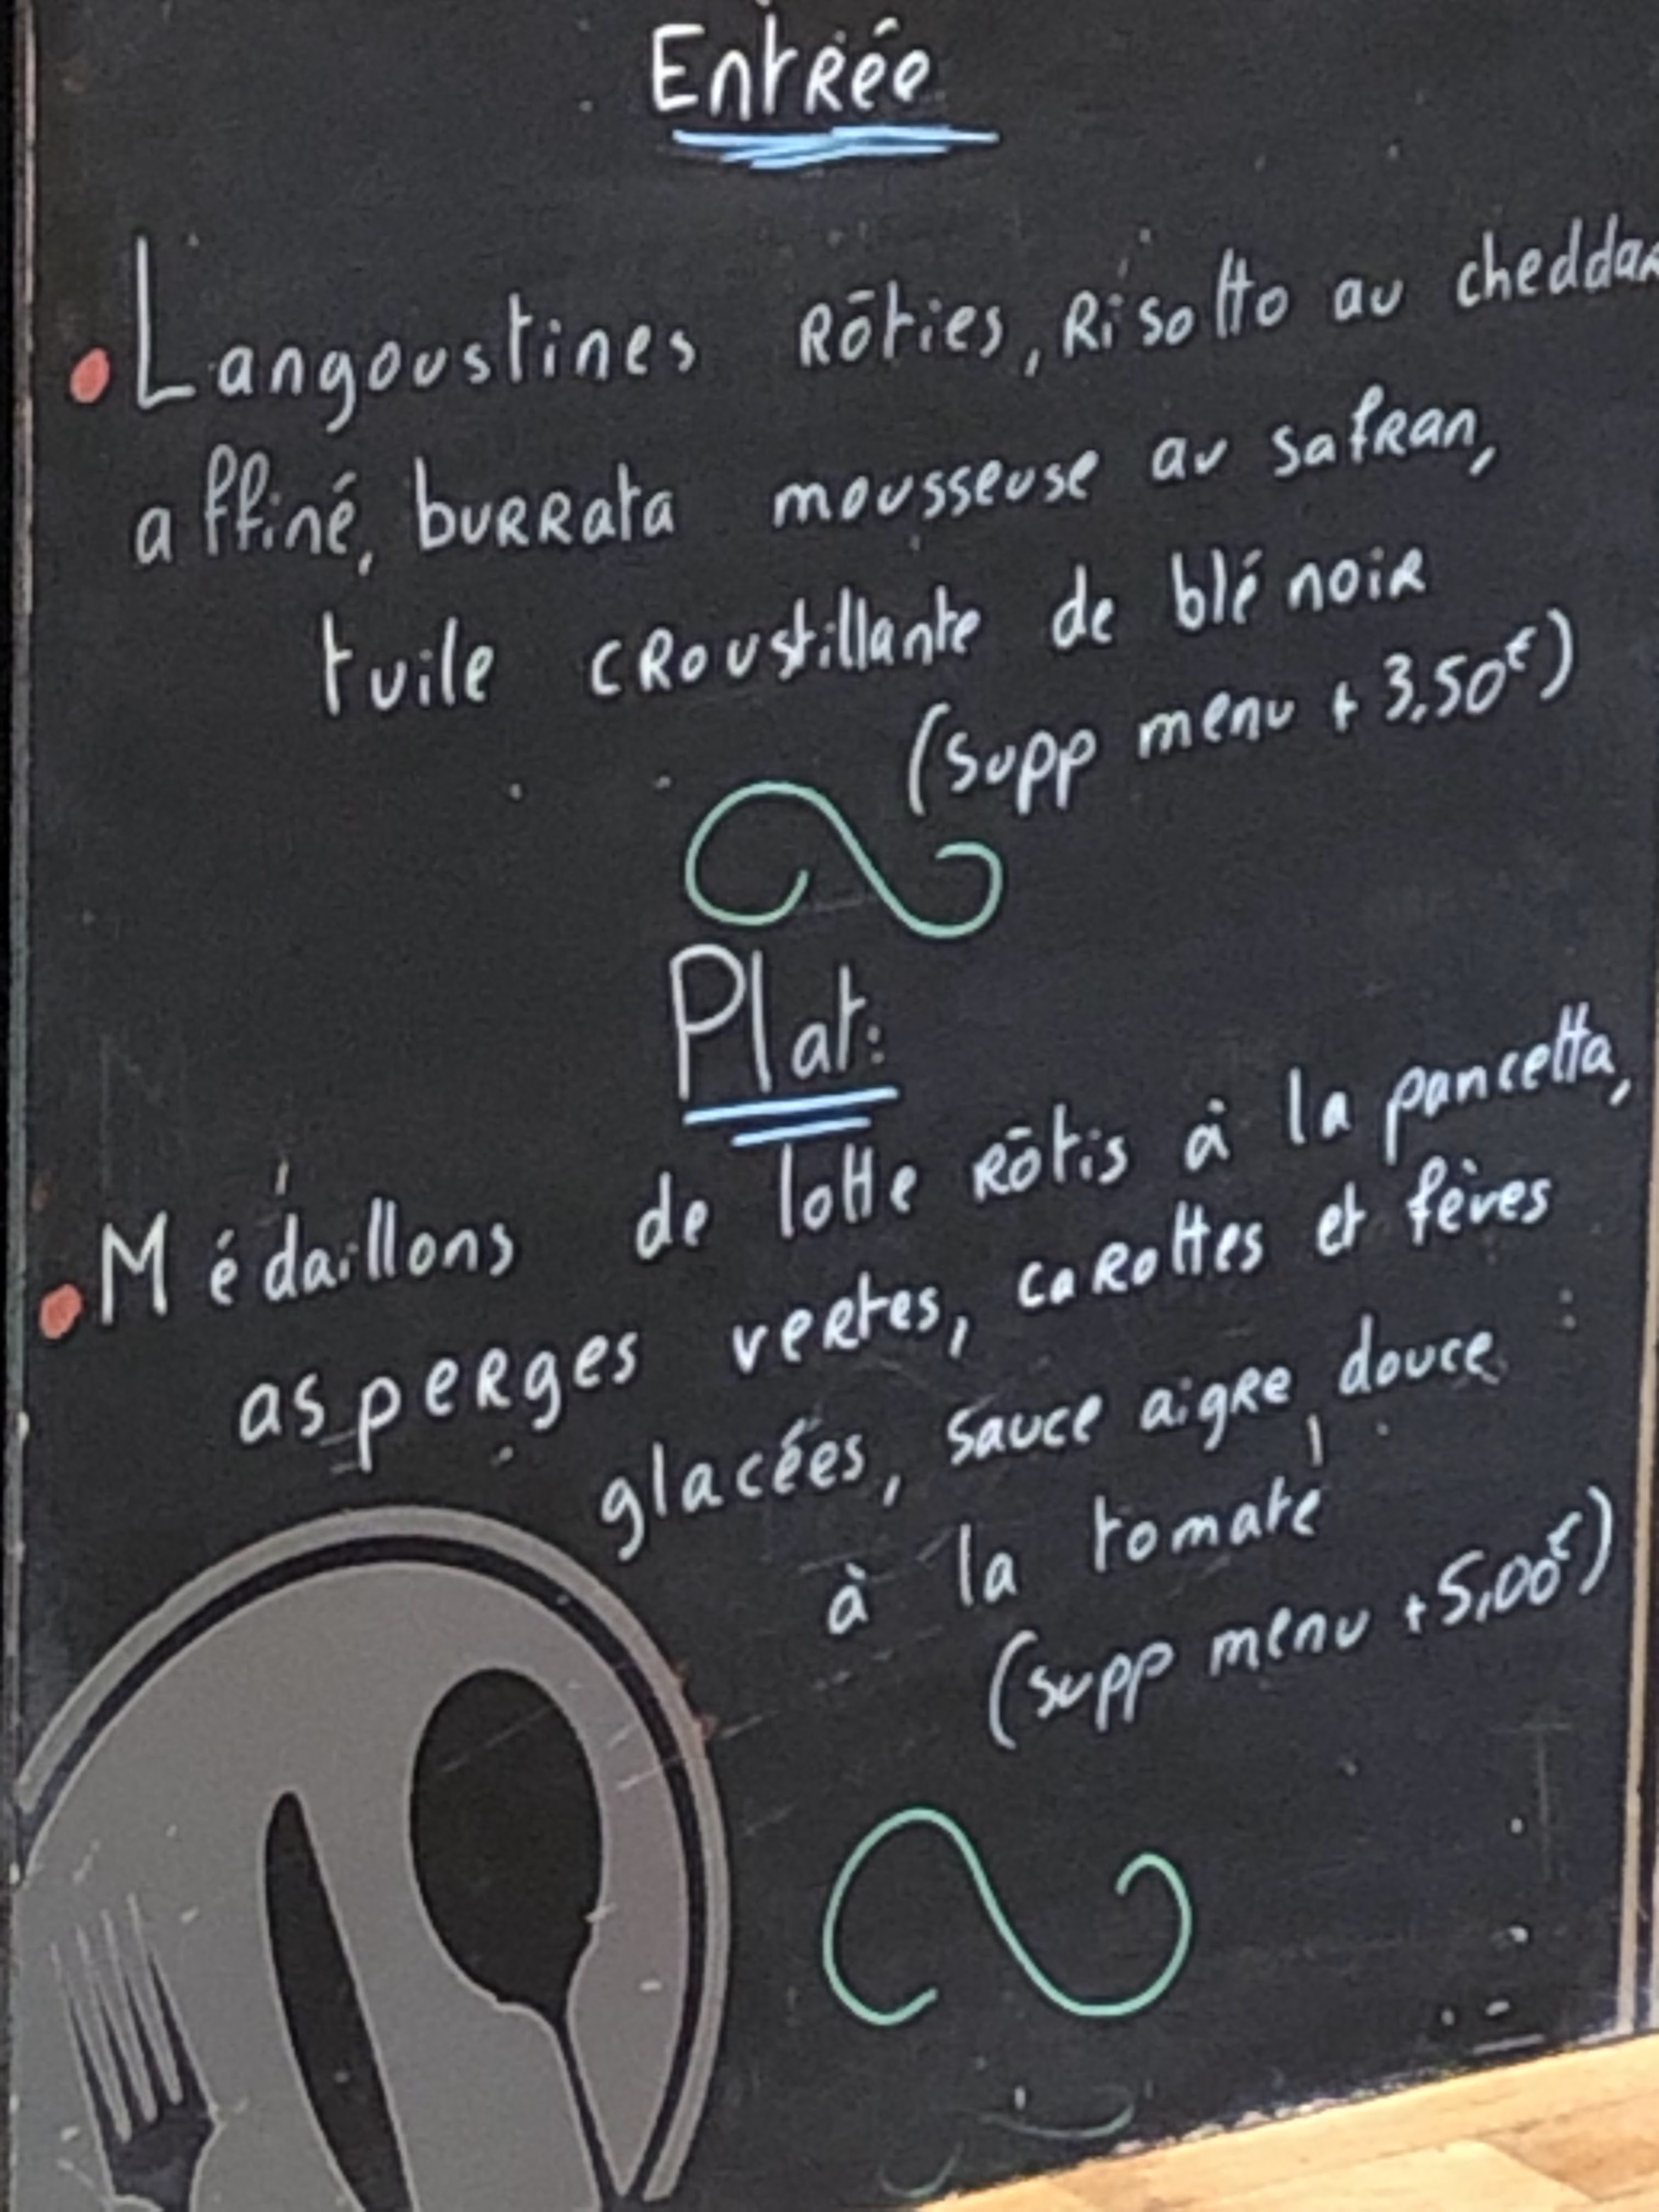 Entrée
• Langoustines Rôties, Risotto au cheddar
affiné, burrata mousseuse au safran,
tuile croustillante de blé noir
(supp menu + 3,50€)
Plat:
• Médaillons de lotte rôtis à la pancetta,
asperges vertes, carottes et fèves
glacées, sauce aigre douce
à la tomate
(supp menu + 5,00€)